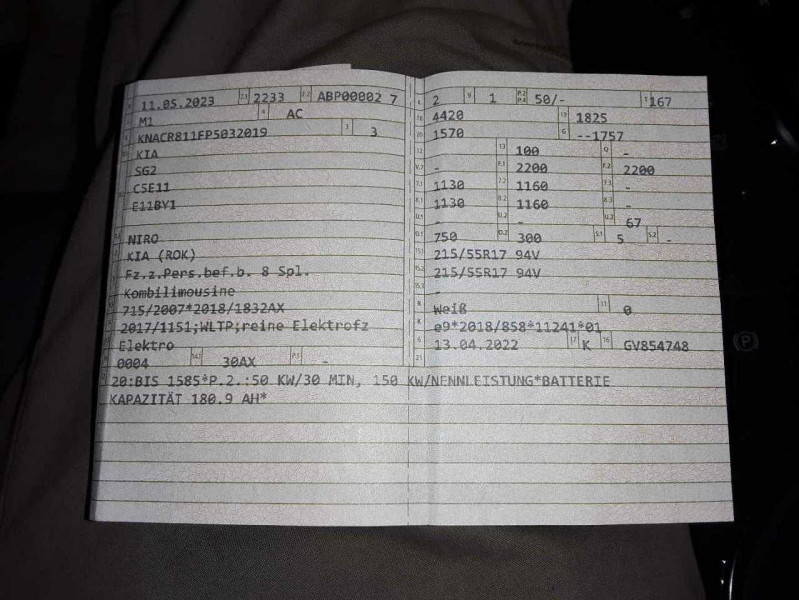 11.05.2023 2.1 2233 2.2 ABP00002 7
M1 4 AC
KNACR811FP5032019 3 3
KIA
SG2
C5E11
E11BY1
NIRO
KIA (ROK)
Fz.z.Pers.bef.b. 8 Spl.
Kombilimousine
715/2007*2018/1832AX
2017/1151;WLTP;reine Elektrofz
Elektro
0004 14.1 30AX P.1 -
2 9 1 P.2 P.4 50/- T 167
18 4420 19 1825
20 1570 G --1757
12 - 13 100 Q -
V.7 - F.1 2200 F.2 2200
7.1 1130 7.2 1160 7.3 -
8.1 1130 8.2 1160 8.3 -
U.1 - U.2 - U.3 67
O.1 750 O.2 300 S.1 5 S.2 -
15.1 215/55R17 94V
15.2 215/55R17 94V
15.3 -
R Weiß 11 0
K e9*2018/858*11241*01
6 13.04.2022 17 K 16 GV854748
21
20:BIS 1585*P.2.:50 KW/30 MIN, 150 KW/NENNLEISTUNG*BATTERIE
KAPAZITÄT 180.9 AH*